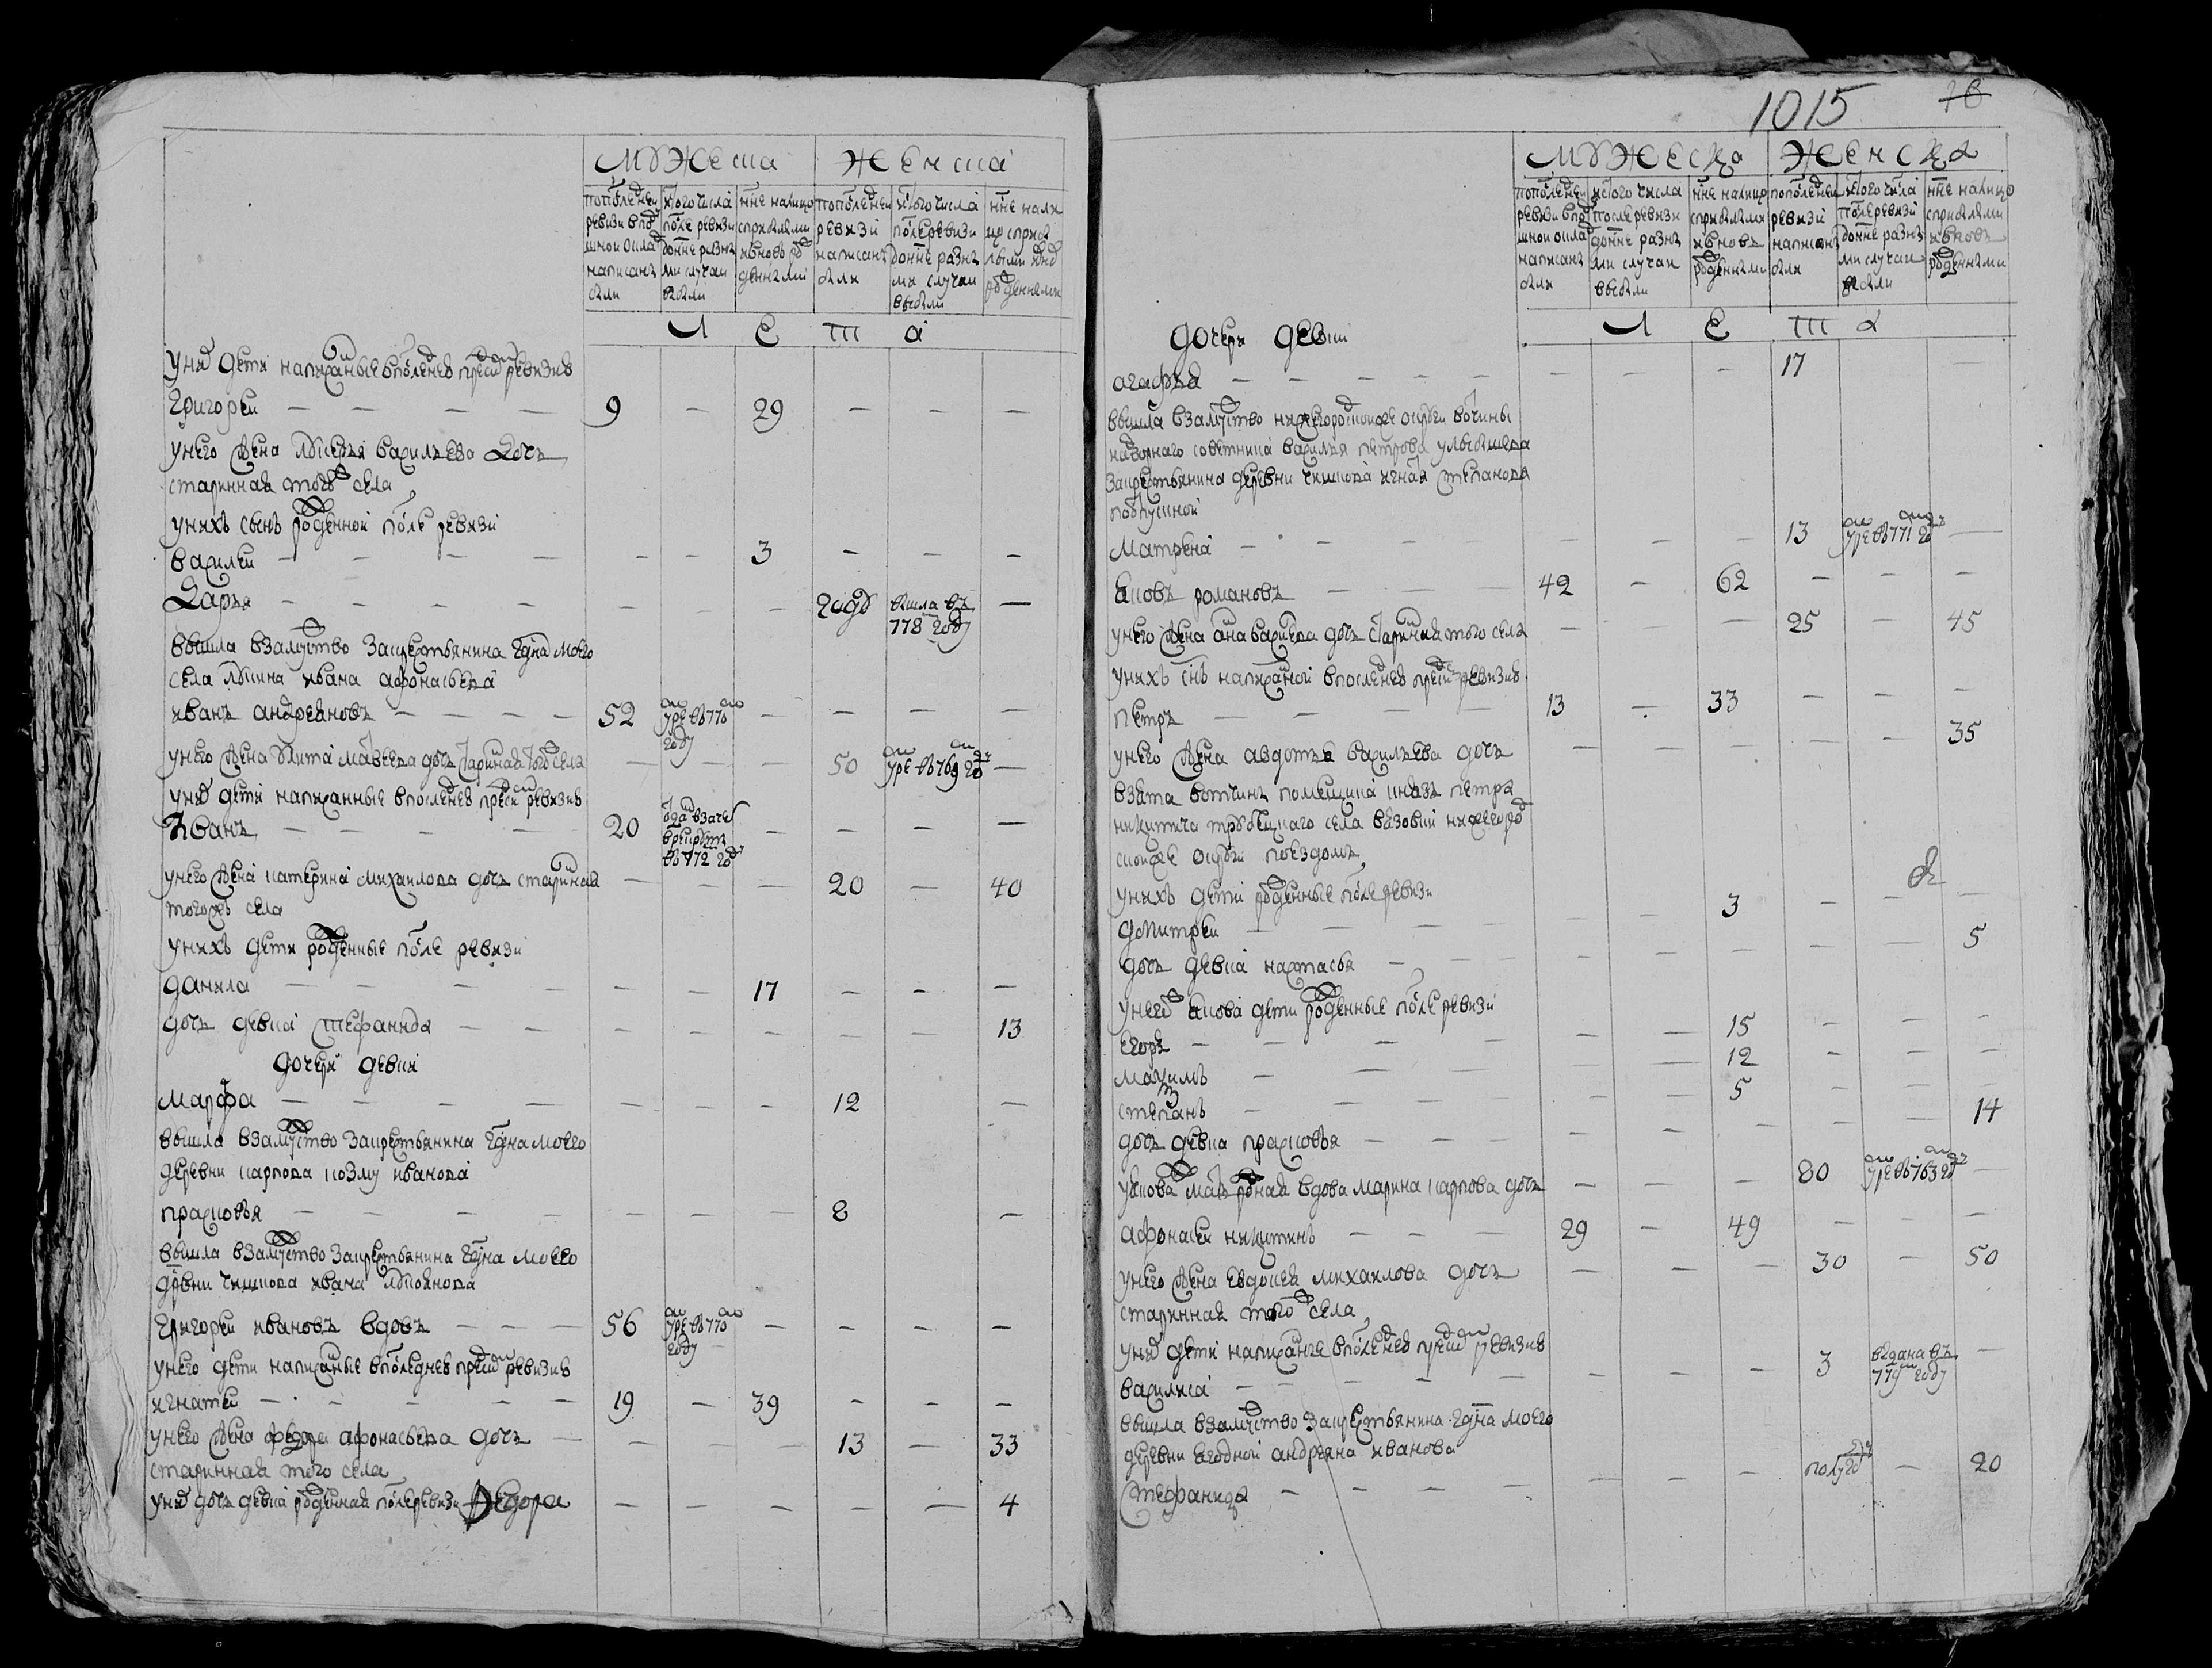 мужеска женска
пополедней ревизи вподушной окладъ написанъ были
ис того числа после ревизи донне разными случаи выбыли
нне налицо сприбылыми ивновь рожденными
пополедней ревизи написанъ были
ис того числа после ревизи донне разными случаи выбыли
нне налицо сприбылыми ивновь рожденными
Л Е Т А
у них дети написаные в последней пред сей ревизие
Григорей — — — — 9 — 29 — — —
у него жена Лукерья василъева дочь
старинная того ж села
у нихъ сынъ рожденной после ревизи
василей — — — — — — 3 — — —
Дарья — — — — — — — году вышла въ 778 году —
вышла взамужство за крестьянина една моего
села ивана афонасьева
иванъ андреяновъ — — — — 52 умре въ 770 году — — — —
у него жена матвеева дочь старинная того села — — — 50 умре въ 769 году —
у них дети написанные в последней пред сей ревизие
Иванъ — — — — 20 отдан взачет врекруты въ 772 году — — — —
у него жена катерина михаилова дочь старинная — — — 20 — 40
тогожъ села
у нихъ дети рожденные после ревизи
данила — — — — — — 17 — — —
дочь девка стефанида — — — — — — — — 13
дочери девки
марфа — — — — — — — 12 —
вышла взамужство за крестьянина една моего
деревни карпова козму иванова
прасковья — — — — — — — 8 —
вышла взамужство за крестьянина една моего
дрвни чишкова ивана лукоянова
Григорей ивановъ вдовъ — — — 56 умре въ 770 году — — — —
у него дети написаные в последнее пред сей ревизие
игнатей — — — — 19 — 39 — — —
у него жена федора афонасьева дочь — — — — 13 — 33
старинная того села
у них дочь девка рожденная после ревизи Федора — — — — — 4
1015
мужеска женска
пополедней ревизи вподушной окладъ написанъ были
ис того числа после ревизи донне разными случаи выбыли
нне налицо сприбылыми ивновь рожденными
пополедней ревизи написанъ были
ис того числа после ревизи донне разными случаи выбыли
нне налицо сприбылыми ивновь рожденными
Л Е Т А
дочери девки
агафья — — — — — — — — 17 —
вышла взамужство нижегородской же округи вочины
надворнаго советника василья петрова улыбышева
за крестьянина деревни чишкова игная степанова
поотпускной
матрена — — — — — — — 13 умре въ 771 году —
Яковъ романовъ — — — 42 — 62 — — —
у него жена ана дочь старинная того села — — 25 — 45
у нихъ снъ написаной в последней пред сей ревизие
петръ — — — — 13 — 33 — — —
у него жена авдотья василъева дочь — — — — — 35
взята вотчинъ помещика князъ петра
никитича трубецкаго села вазовки нижегород
ской же округи поезду
у нихъ дети рожденные после ревизи
дмитрей — — — — — — 3 — — —
дочь девка настасья — — — — — — — — 5
у него ж Якова дети рожденные после ревизи
егоръ — — — — — — 15 — — —
максимъ — — — — — 12 — — —
степанъ — — — — — — 5 — — —
дочь девка прасковья — — — — — — — — 14
у Якова мать родная вдова марина карпова дочь — — — 80 умре въ 763 году —
афонасей никитинъ — — — 29 — 49 — — —
у него жена евдокея михаилова дочь — — — 30 — 50
старинная того ж села
у них дети написаные в последней пред сей ревизие
василиса — — — — — — — 3 выдана въ 779м году —
вышла взамужство за крестьянина една моего
деревни ягодной андреяна иванова
Стефанида — — — — — — — полугоду — 20